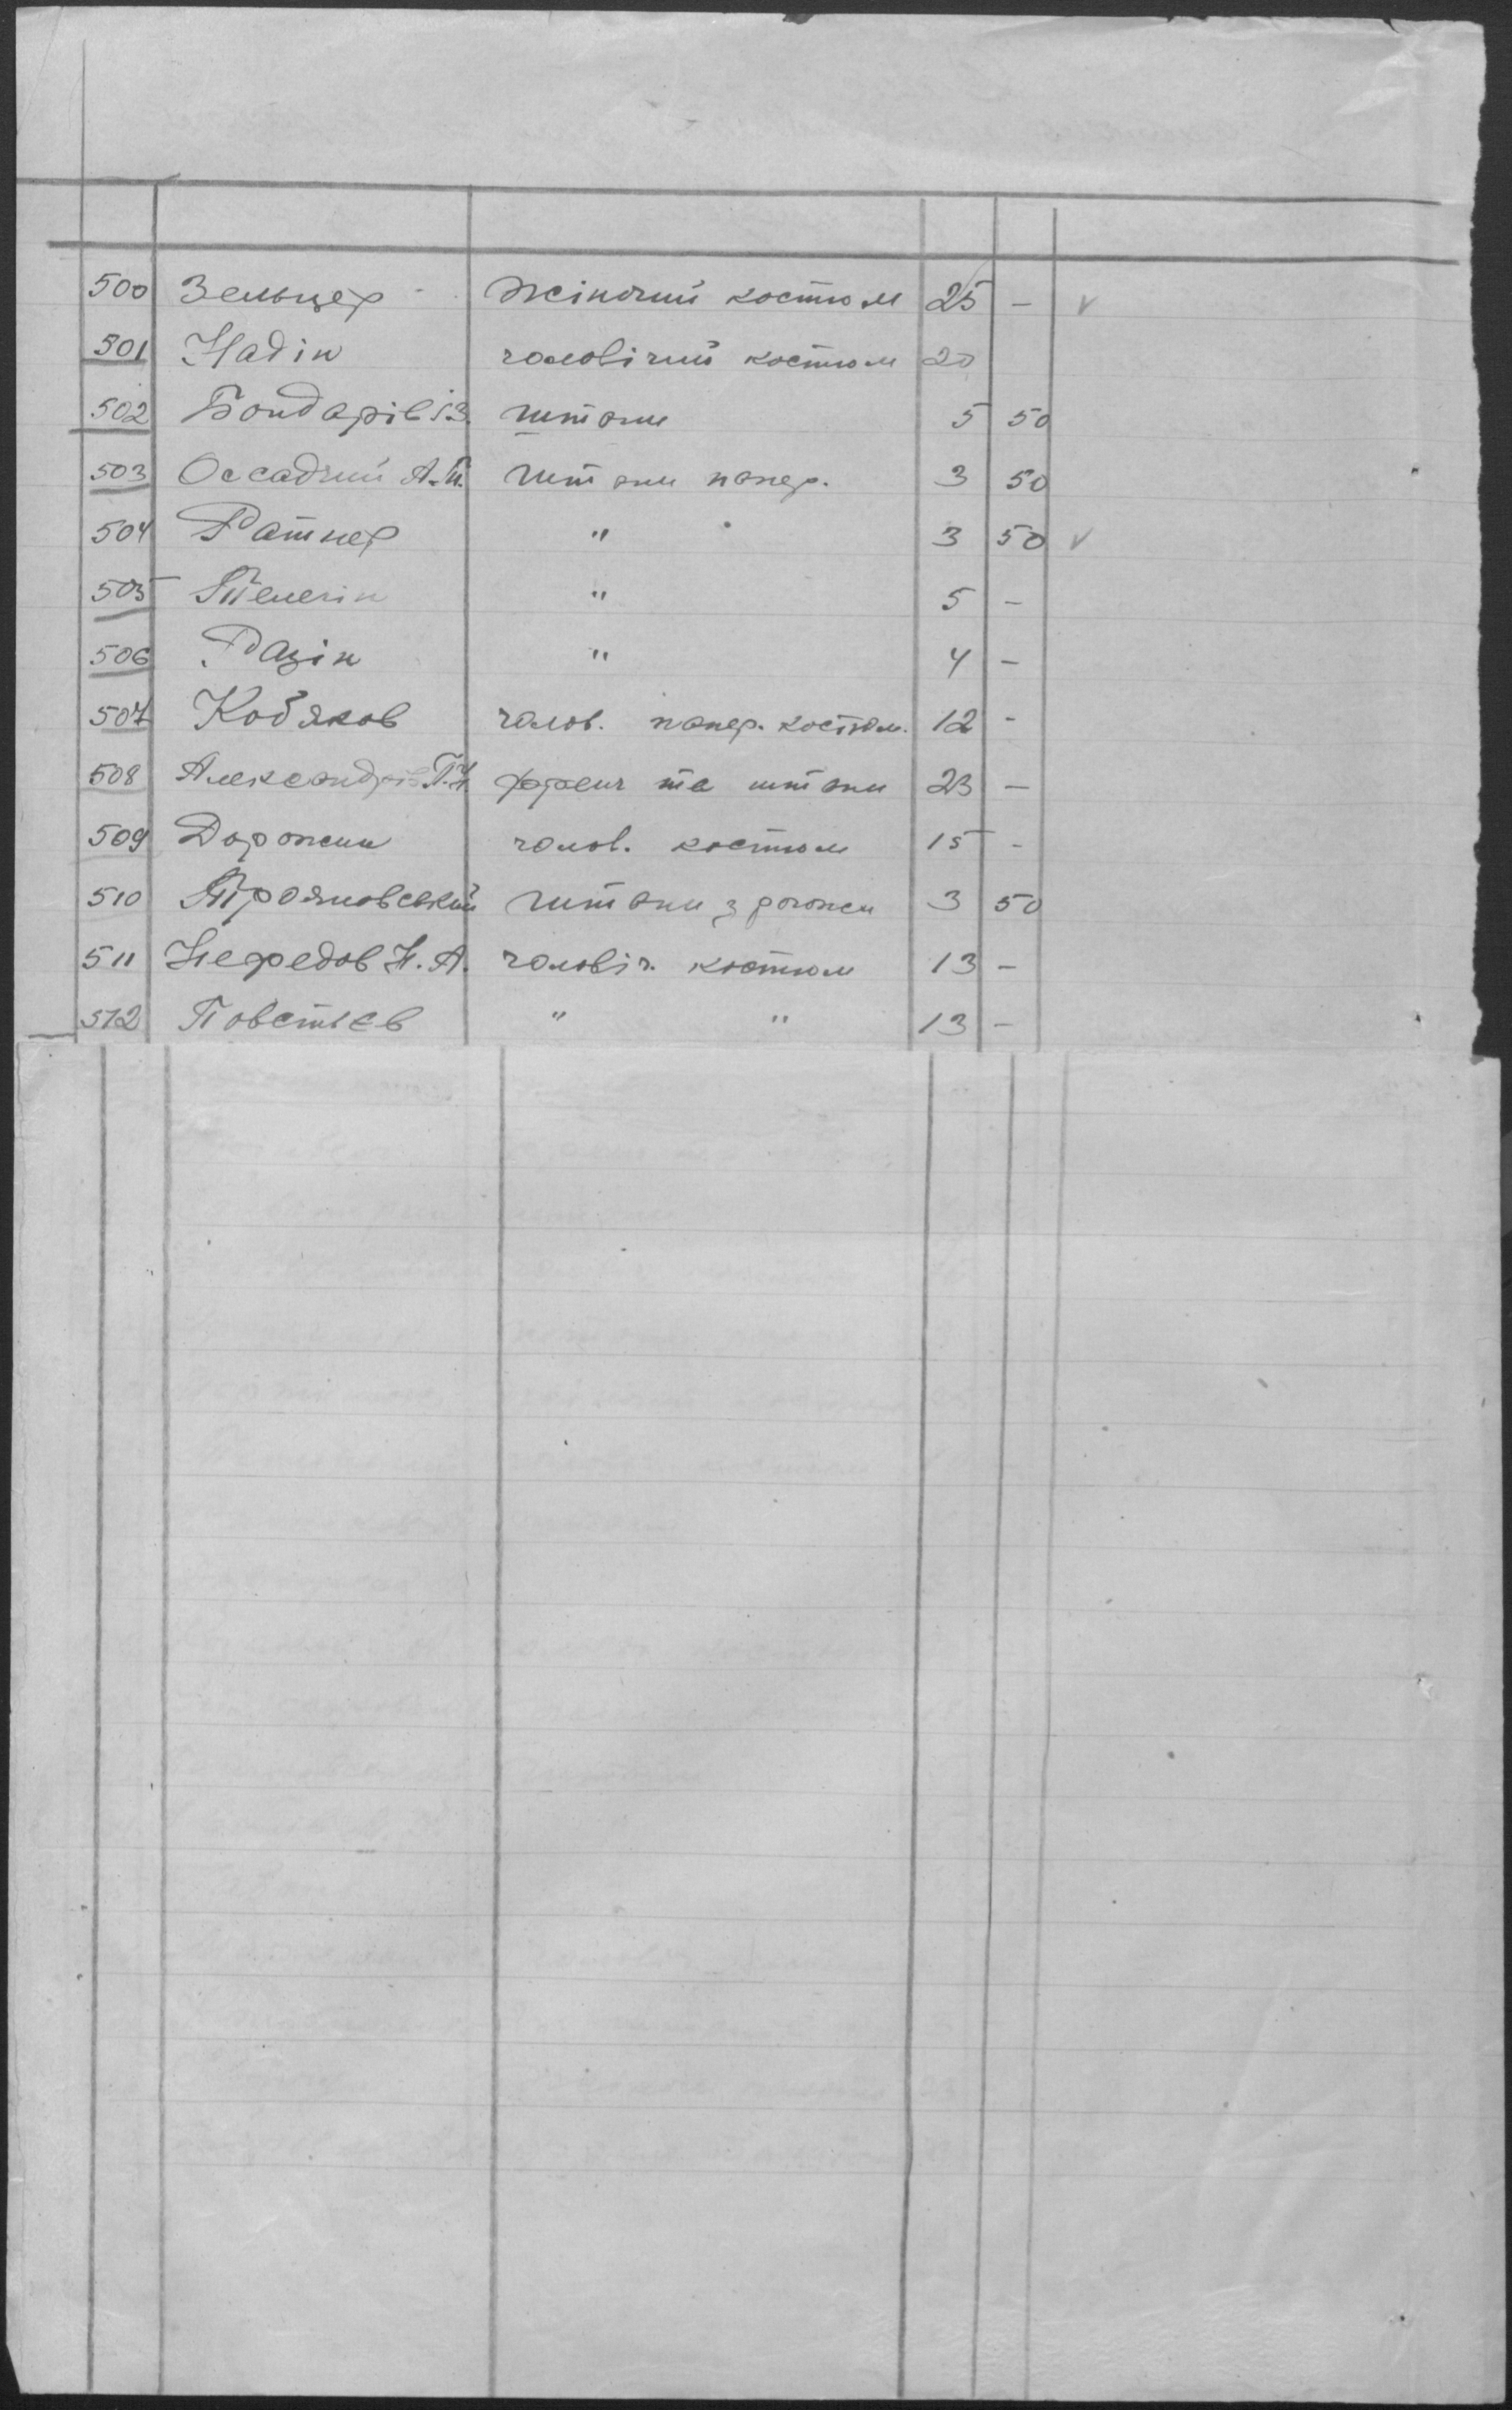 500 Зельцер жіночий костюм 25 – v
501 Надін чоловічий костюм 20
502 Бондарів І.З. штани 5 50
503 Оссадчий А.П. штани папер. 3 50
504 Ратнер " 3 50 v
505 " 5 –
506 Разін " 4 –
507 Коб'яков чолов. папер. костюм. 12 -
508 Александрів френч та штани 23 –
509 Дорожин чолов. костюм 15 -
510 Трояновський штани з рогожи 3 50
511 Нефедов Н. А. чоловіч. костюм 13 –
512 Повстьєв " " 13 –